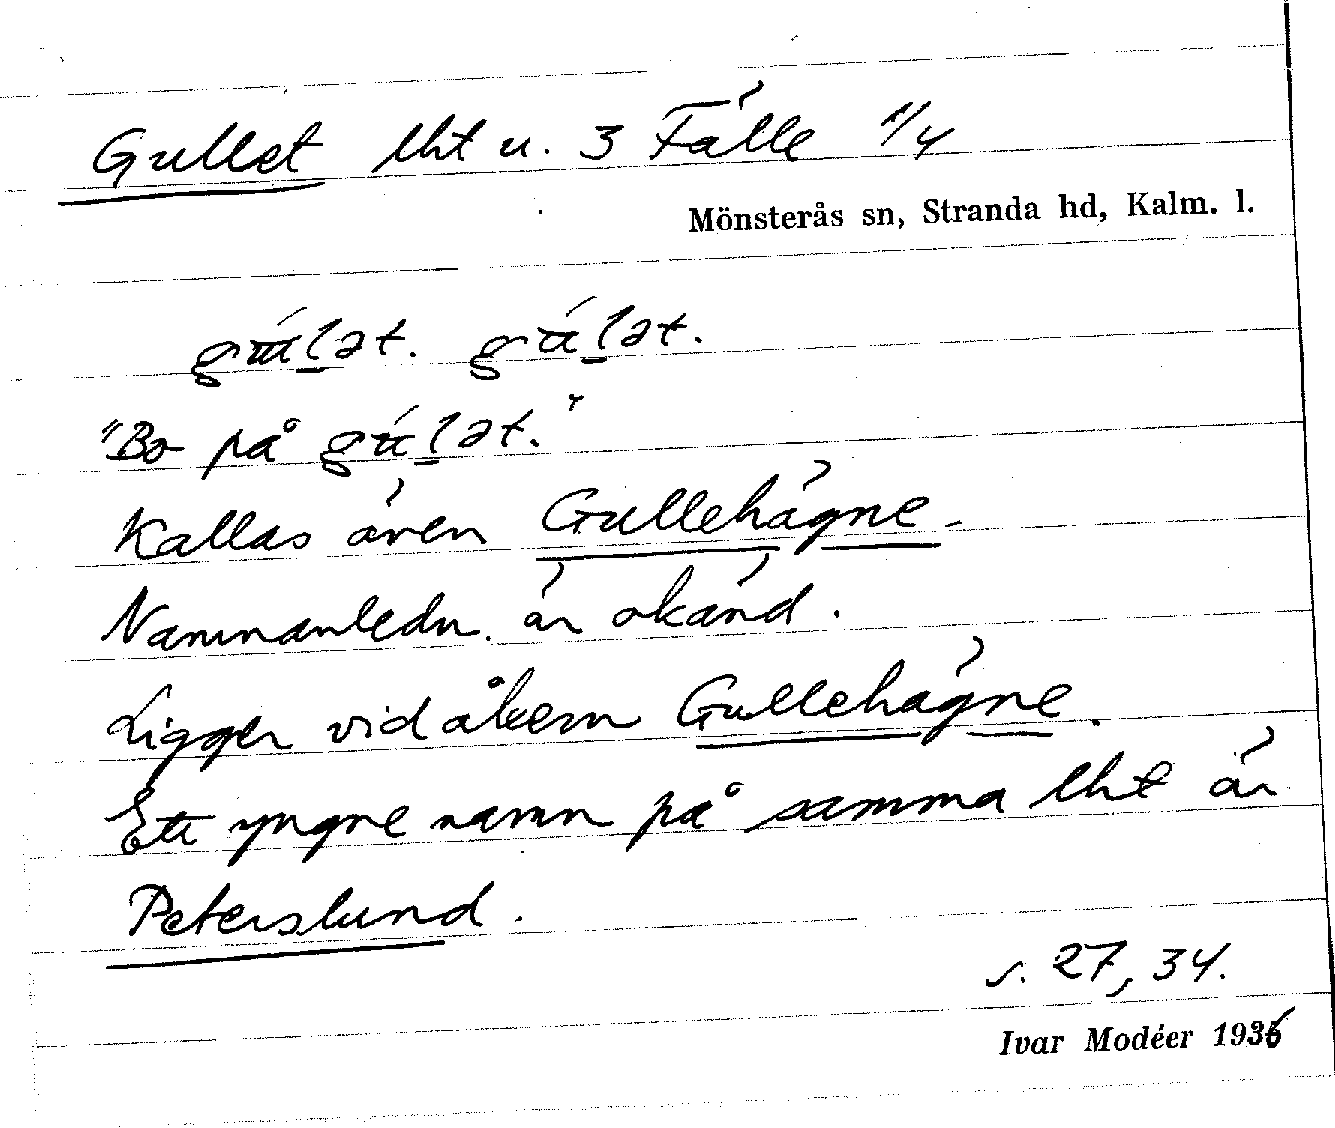 Gullet lht u. 3 Fälle 1/4
Mönsterås sn, Stranda hd, Kalm. l.
gúlət. gúlət.
"Bo på gúlət."
Kallas även Gullehägne.
Namnanledn. är okänd.
Ligger vid åkern Gullehägne.
Ett yngre namn på samma lht är
Peterslund.
s. 27, 34.
Ivar Modéer 1936